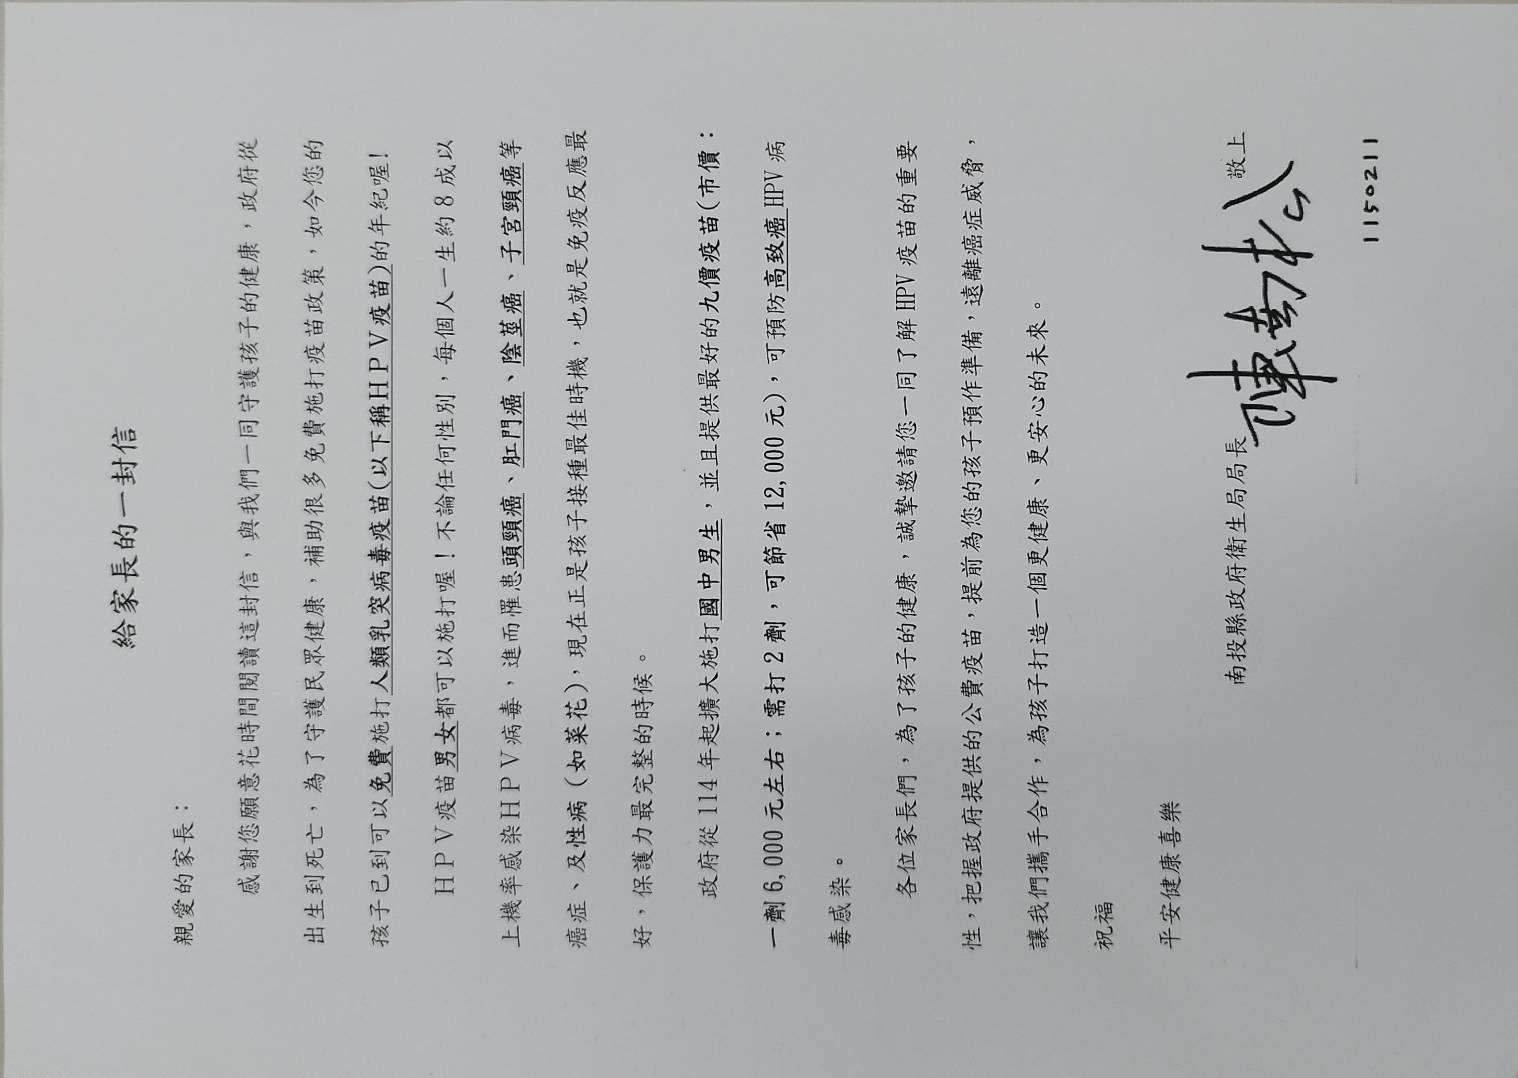 給家長的一封信
親愛的家長：
感謝您願意花時間閱讀這封信，與我們一同守護孩子的健康，政府從
出生到死亡，為了守護民眾健康，補助很多免費施打疫苗政策，如今您的
孩子已到可以免費施打人類乳突病毒疫苗(以下稱HPV疫苗)的年紀喔!
HPV疫苗男女都可以施打喔！不論任何性別，每個人一生約8成以
上機率感染HPV病毒，進而罹患頭頸癌、肛門癌、陰莖癌、子宮頸癌等
癌症、及性病（如菜花），現在正是孩子接種最佳時機，也就是免疫反應最
好，保護力最完整的時候。
政府從114年起擴大施打國中男生，並且提供最好的九價疫苗(市價：
一劑6,000元左右；需打2劑，可節省12,000元)，可預防高致癌HPV病
毒感染。
各位家長們，為了孩子的健康，誠摯邀請您一同了解HPV疫苗的重要
性，把握政府提供的公費疫苗，提前為您的孩子預作準備，遠離癌症威脅，
讓我們攜手合作，為孩子打造一個更健康、更安心的未來。
祝福
平安健康喜樂
南投縣政府衛生局局長 陳南松 敬上
1150211